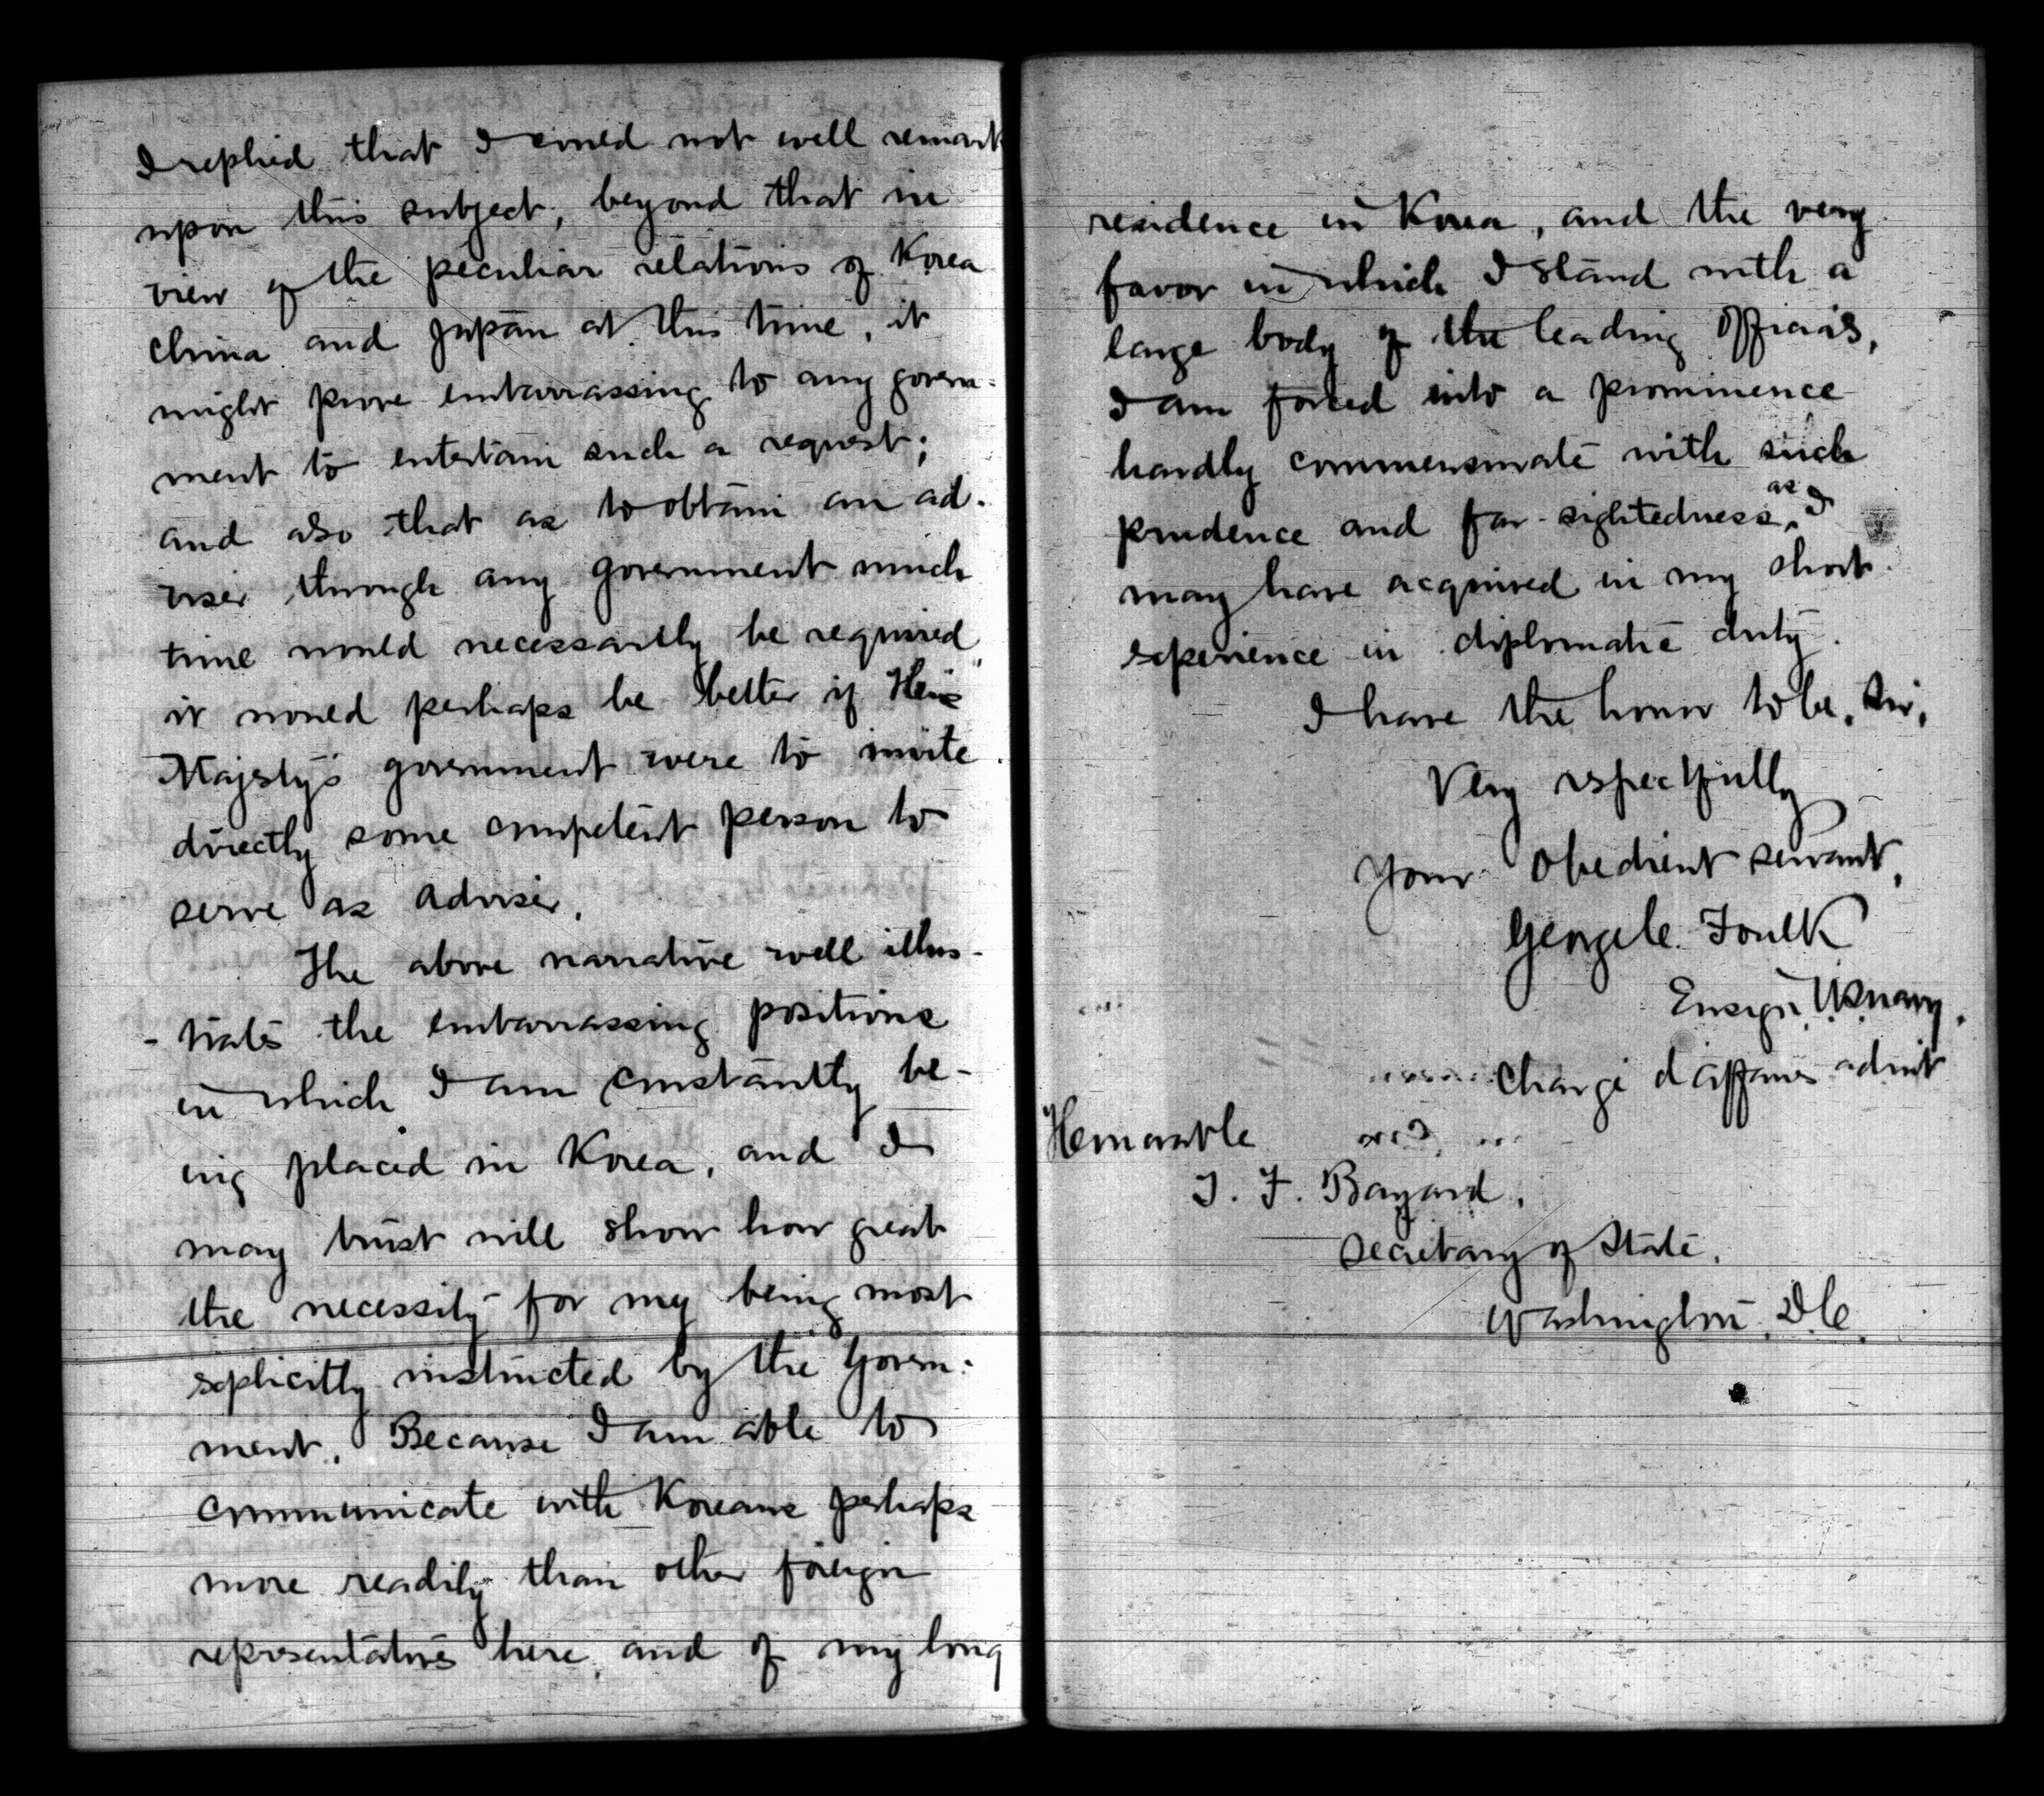 I replied that I could not well remark
upon this subject, beyond that in
view of the peculiar relations of Korea
China and Japan at this time, it
might prove embarrassing to any govern-
ment to entertain such a request;
and also that as to obtain an ad-
viser through any government much
time would necessarily be required,
it would perhaps be better if His
Majesty's government were to invite
directly some competent person to
serve as adviser.
The above narrative well illus-
-trates the embarrassing positions
in which I am constantly be-
ing placed in Korea, and I
may trust will show how great
the necessity for my being most
explicitly instructed by the Govern-
ment. Because I am able to
communicate with Koreans perhaps
more readily than other foreign
representatives here, and of my long
residence in Korea, and the very
favor in which I stand with a
large body of the leading officials,
I am forced into a prominence
hardly commensurate with such
prudence and far-sightedness, as I
may have acquired in my short
experience in diplomatic duty.
I have the honor to be, Sir,
Very respectfully
Your obedient servant,
George C. Foulk
Ensign, U.S. Navy,
Chargé d'affaires ad int
Honorable
T. F. Bayard,
Secretary of State,
Washington, D.C.